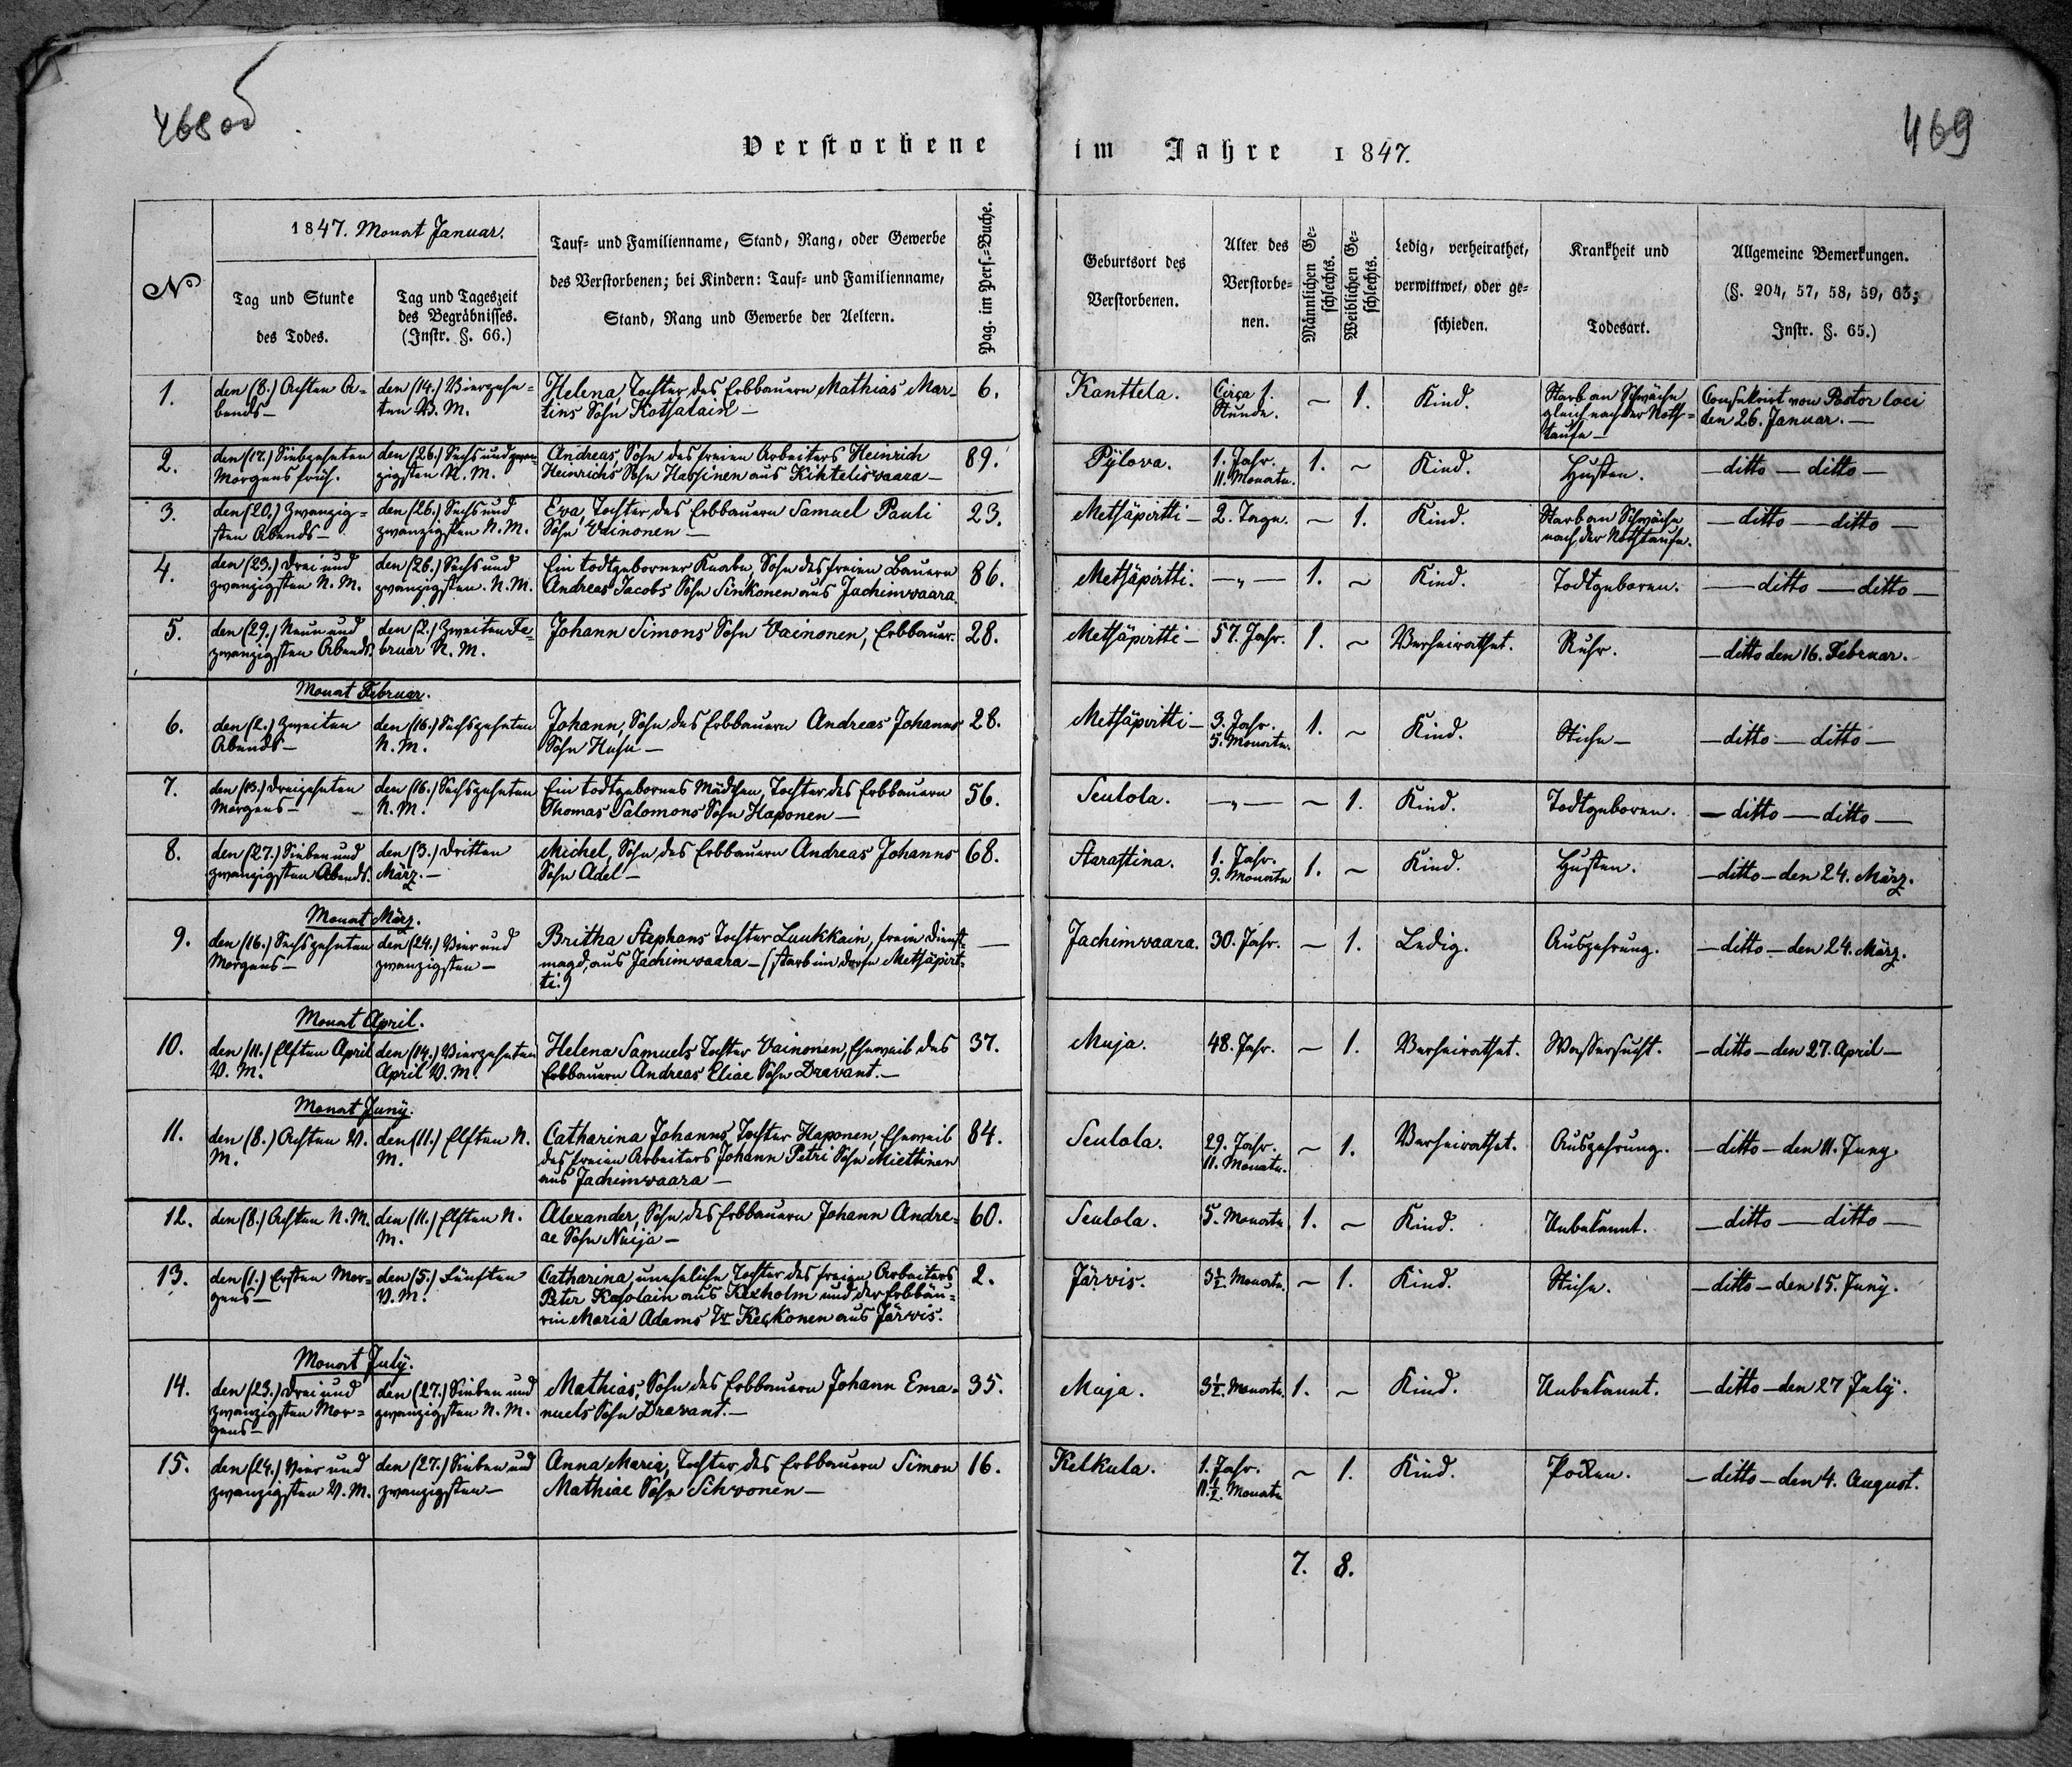 468 od
469
Verstorbene im Jahre 1847.
№
1847. Monat Januar.
Tag und Stunde
des Todes.
Tag und Tageszeit
des Begräbnisses.
(Instr. §. 66.)
Tauf- und Familienname, Stand, Rang, oder Gewerbe
des Verstorbenen; bei Kindern: Tauf- und Familienname,
Stand, Rang und Gewerbe der Aeltern.
Pag. im Pers.-Buche.
Geburtsort des
Verstorbenen.
Alter des
Verstorbe-
nen.
Männlichen Ge-
schlechts.
Weiblichen Ge-
schlechts.
Ledig, verheirathet,
verwittwet, oder ge-
schieden.
Krankheit und
Todesart.
Allgemeine Bemerkungen.
(§. 204, 57, 58, 59, 63;
Instr. §. 65.)
1.
den (8.) Achten A-
bends —
den (14.) Vierzehn-
ten N. M.
Helena, Tochter des Erbbauern Mathias Mar-
tins Sohn Kotsalain —
6.
Kanttela.
Circa 1.
Stunde.
~
1.
Kind.
Starb an Schwäche
gleich nach der Noth-
taufe —
Consekrirt von Pastor loci
den 26. Januar. —
2.
den (17.) Siebzehnten
Morgens früh.
den (26.) Sechs und zwan-
zigsten N. M.
Andreas, Sohn des freien Arbeiters Heinrich
Heinrichs Sohn Hassinen aus Kihtelisvaara —
89.
Pÿlova.
1. Jahr.
11. Monate.
1.
~
Kind.
Husten.
— ditto — ditto —
3.
den (20.) Zwanzig-
sten Abends —
den (26.) Sechs und
zwanzigsten N. M.
Eva, Tochter des Erbbauern Samuel Pauli
Sohn Vainonen —
23.
Metsäpirtti —
2. Tage.
~
1.
Kind.
Starb an Schwäche
nach der Nothtaufe.
— ditto — ditto —
4.
den (23.) Drei und
zwanzigsten N. M.
den (26.) Sechs und
zwanzigsten. N. M.
Ein todtgeborner Knabe, Sohn des freien Bauern
Andreas Jacobs Sohn Sinkonen aus Jachimvaara.
86.
Metsäpirtti.
— „ —
1.
~
Kind.
Todtgeboren.
— ditto — ditto —
5.
den (29.) Neun und
zwanzigsten Abends.
den (2.) Zweiten Fe-
bruar N. M.
Johann Simons Sohn Vainonen, Erbbauer.
28.
Metsäpirtti —
57. Jahr.
1.
~
Verheirathet.
Ruhr.
— ditto den 16. Februar.
Monat Februar.
6.
den (2.) Zweiten
Abends —
den (16.) Sechszehnten
N. M.
Johann, Sohn des Erbbauern Andreas Johanns
Sohn Husu —
28.
Metsäpirtti —
3. Jahr.
5. Monate.
1.
~
Kind.
Stiche —
— ditto — ditto —
7.
den (13.) Dreizehnten
Morgens —
den (16.) Sechszehnten
N. M.
Ein todtgebornes Mädchen, Tochter des Erbbauern
Thomas Salomons Sohn Haponen —
56.
Seulola.
— „ —
~
1.
Kind.
Todtgeboren.
— ditto — ditto —
8.
den (27.) Sieben und
zwanzigsten Abends.
den (3.) Dritten
März. —
Michel, Sohn des Erbbauern Andreas Johanns
Sohn Adel —
68.
Starastina.
1. Jahr.
9. Monate
1.
~
Kind.
Husten.
— ditto — den 24. März.
Monat März.
9.
den (16.) Sechszehnten
Morgens —
den (24.) Vier und
zwanzigsten —
Britha Stephans Tochter Luukkain, freie Dienst-
magd, aus Jachimvaara — (starb im Dorfe Metsäpirt-
ti.)
—
Jachimvaara.
30. Jahr.
~
1.
Ledig.
Auszehrung.
— ditto — den 24. März.
Monat April.
10.
den (11.) Elften April
V. M.
den (14.) Vierzehnten
April V. M.
Helena Samuels Tochter Vainonen, Eheweib des
Erbbauern Andreas Eliae Sohn Dravant. —
37.
Muja.
48. Jahr.
~
1.
Verheirathet.
Wassersucht.
— ditto — den 27. April —
Monat Junÿ.
11.
den (8.) Achten V.
M.
den (11.) Elften N.
M.
Catharina Johanns Tochter Haponen, Eheweib
des freien Arbeiters Johann Petri Sohn Miettinen
aus Jachimvaara —
84.
Seulola.
29. Jahr.
11. Monate.
~
1.
Verheirathet.
Auszehrung.
— ditto — den 11. Juny.
12.
den (8.) Achten N. M.
den (11.) Elften N.
M.
Alexander, Sohn des Erbbauern Johann Andre-
ae Sohn Nuija —
60.
Seulola.
5. Monate.
1.
~
Kind.
Unbekannt.
— ditto — ditto —
13.
den (1.) Ersten Mor-
gens —
den (5.) Fünften
V. M.
Catharina, uneheliche Tochter des freien Arbeiters
Peter Kasolain aus Kexholm und der Erbbäu-
rin Maria Adams Tr Keckonen aus Järvis.
2.
Järvis.
3½. Monate.
~
1.
Kind.
Stiche.
— ditto — den 15. Junÿ.
Monat Julÿ.
14.
den (23.) Drei und
zwanzigsten Mor-
gens —
den (27.) Sieben und
zwanzigsten N. M.
Mathias, Sohn des Erbbauern Johann Ema-
nuels Sohn Dravant. —
35.
Muja.
3½. Monate.
1.
~
Kind.
Unbekannt.
— ditto — den 27 Julÿ.
15.
den (24.) Vier und
zwanzigsten V. M.
den (27.) Sieben und
zwanzigsten —
Anna Maria, Tochter des Erbbauern Simon
Mathiae Sohn Sihvonen —
16.
Kelkula.
1. Jahr.
11.½. Monate
~
1.
Kind.
Pocken.
— ditto — den 4. August.
7.
8.